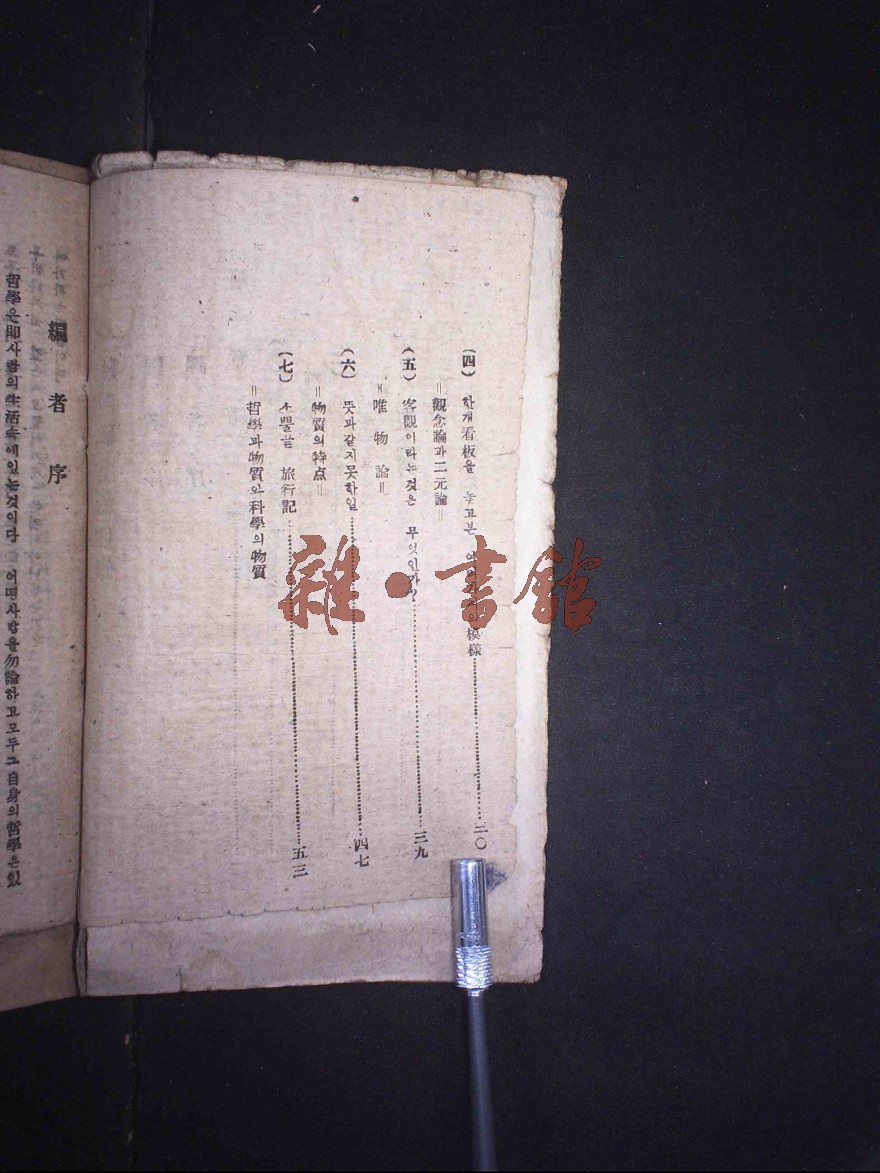 (四) 한개看板을 놓고본 模樣…三〇
=觀念論과二元論=
(五) 客觀이라는것은 무엇인가?…三九
=唯物論=
(六) 뜻과같지못한일…四七
=物質의特点=
(七) 旅行記…五三
=哲學과物質와科學의物質
編者序
哲學은即사람의生活속에있는것이다 어떤사람을勿論하고모두그自身의哲學은있
雜·書館